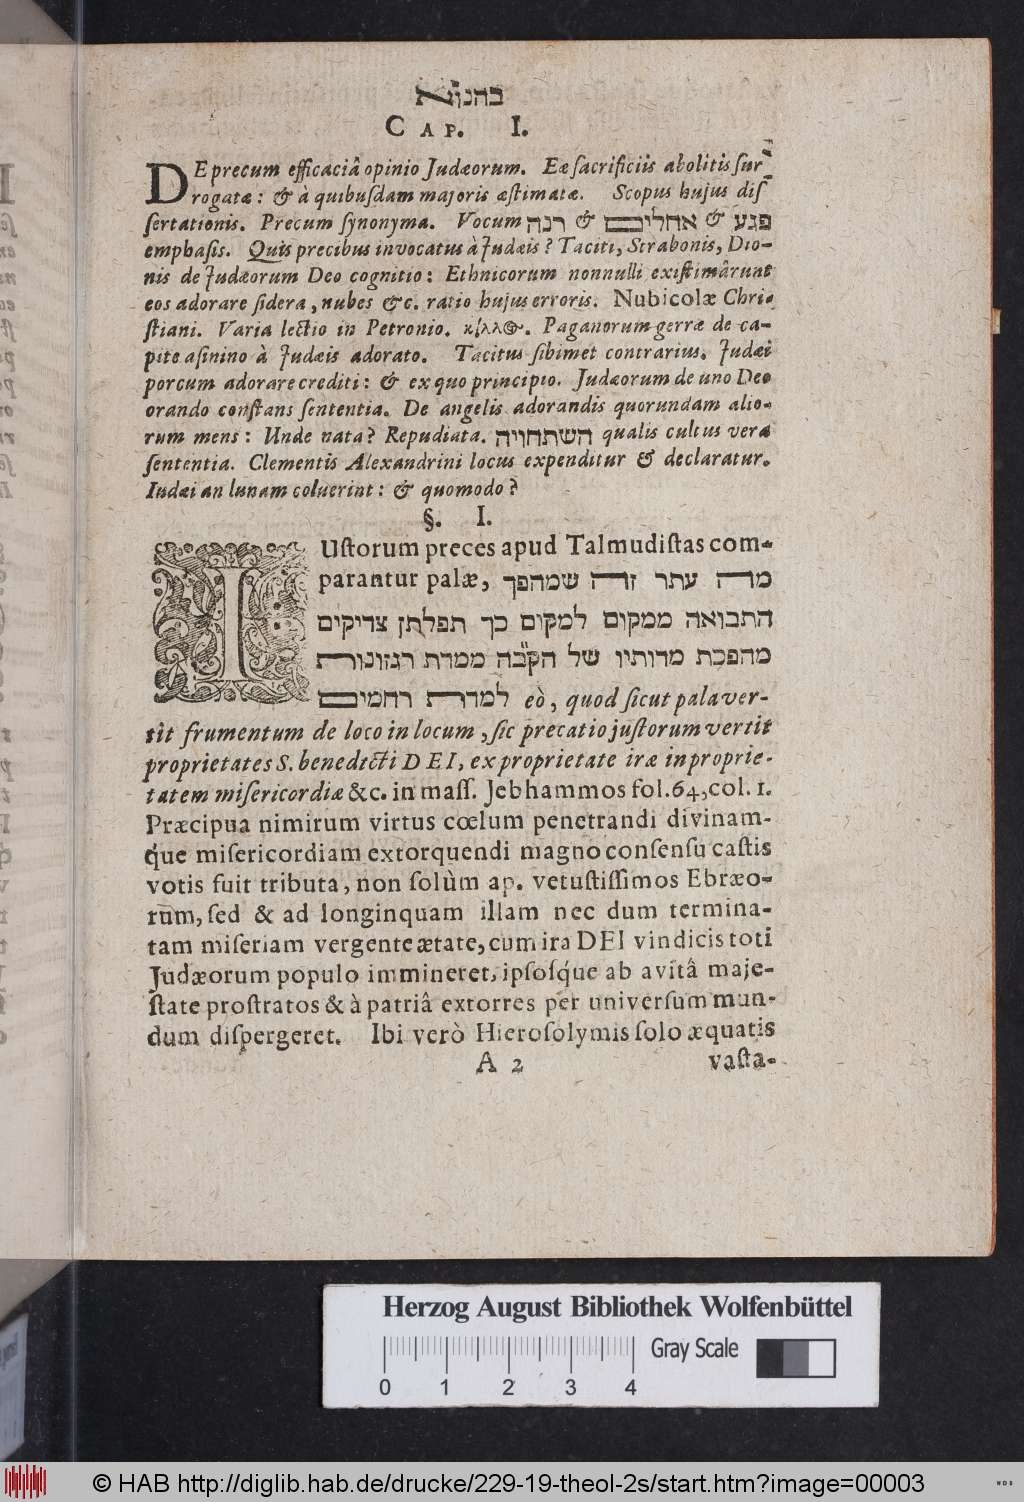 בהנו״א
CAP. I.
DE precum efficaciâ opinio Judæorum. Eæ ſacrificiis abolitis ſur-
rogatæ: & à quibuſdam majoris æſtimatæ. Scopus hujus diſ-
ſertationis. Precum ſynonyma. Vocum רנה & אחלים & פגע
emphaſis. Quis precibus invocatus à Judæis? Taciti, Strabonis, Dio-
nis de Judæorum Deo cognitio: Ethnicorum nonnulli exiſtimârunt
eos adorare ſidera, nubes &c. ratio hujus erroris. Nubicolæ Chri-
ſtiani. Varia lectio in Petronio. κίλλος. Paganorum gerræ de ca-
pite aſinino à Judæis adorato. Tacitus ſibimet contrarius. Judæi
porcum adorare crediti: & ex quo principio. Judæorum de uno Deo
orando conſtans ſententia. De angelis adorandis quorundam alio-
rum mens: Unde nata? Repudiata. השתחויה qualis cultus vera
ſententia. Clementis Alexandrini locus expenditur & declaratur.
Iudæi an lunam coluerint: & quomodo?
§. I.
IUſtorum preces apud Talmudiſtas com-
parantur palæ, מה עתר זה שמהפך
התבואה ממקום למקום כך תפלתן צדיקים
מהפכת מדותיו של הק״בה ממדת רגזונות
למדת רחמים eò, quod ſicut pala ver-
tit frumentum de loco in locum, ſic precatio juſtorum vertit
proprietates S. benedicti DEI, ex proprietate iræ in proprie-
tatem miſericordiæ &c. in maſſ. Jebhammos fol. 64, col. 1.
Præcipua nimirum virtus cœlum penetrandi divinam-
q́ue miſericordiam extorquendi magno conſenſu caſtis
votis fuit tributa, non ſolùm ap. vetuſtiſſimos Ebræo-
rum, ſed & ad longinquam illam nec dum termina-
tam miſeriam vergente ætate, cum ira DEI vindicis toti
Judæorum populo immineret, ipſoſq́ue ab avitâ maje-
ſtate proſtratos & à patriâ extorres per univerſum mun-
dum diſpergeret. Ibi verò Hieroſolymis ſolo æquatis
A 2 vaſta-
Herzog August Bibliothek Wolfenbüttel
Gray Scale
0 1 2 3 4
© HAB http://diglib.hab.de/drucke/229-19-theol-2s/start.htm?image=00003